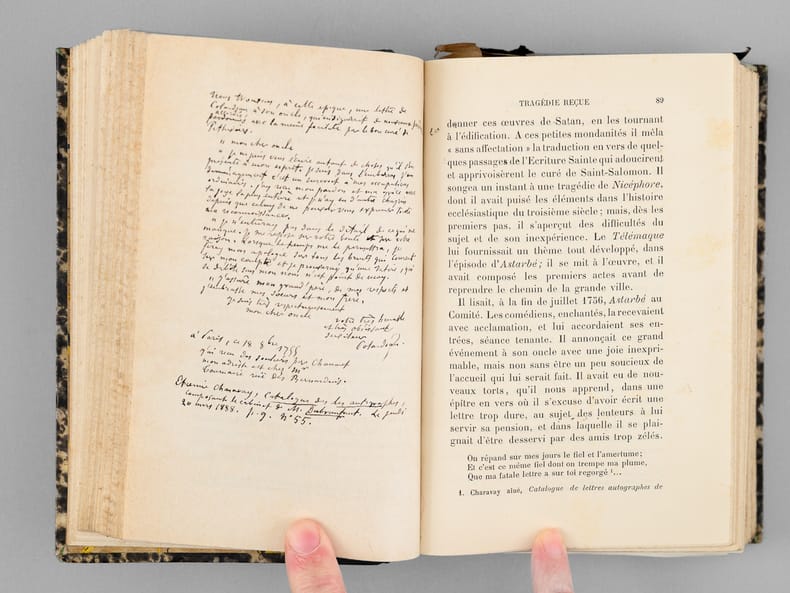 Nous trouvons, à cette époque, une lettre de
Colardeau à son oncle, qui
avec la même par le bon curé de
Pithiviers.
« mon cher oncle
« je
présente à mon esprit
est un surcroit à mes occupations
ordinaires. j'ay reçu mon pardon et
la joye la plus entière et je n'ay eu d'autre chagrin
depuis que celuy de ne pouvoir vous exprimer toute
ma reconnoissance.
« je n'entreray pas dans le détail de ce qui me
manque. je me repose sur votre bonté
Lorsque le temps me le permettra, je
feray mon apologie sur tous les bruits qui courent
sur mon compte et je prouveray qu'une lettre, qui
se débite sous mon nom n'est point de moy.
« j'assure mon grand père, de mes respects et
j'embrasse mes sœurs et mon frère.
je suis très respectueusement
mon cher oncle
votre très humble
et très obéissant
serviteur
Colardeau.
à Paris, ce 18 8bre 1755
j'ai reçu des souliers par
mon adresse est chez Mr
rue des Bernardins.
Charavay, Catalogue des autographes,
composant le cabinet de M. Dubrunfaut. Le jeudi
20 mars 1888. p. 9. n° 55.
TRAGÉDIE REÇUE 89
donner ces œuvres de Satan, en les tournant
à l'édification. A ces petites mondanités il mêla
« sans affectation » la traduction en vers de quel-
ques passages de l'Ecriture Sainte qui adoucirent
et apprivoisèrent le curé de Saint-Salomon. Il
songea un instant à une tragédie de Nicéphore,
dont il avait puisé les éléments dans l'histoire
ecclésiastique du troisième siècle ; mais, dès les
premiers pas, il s'aperçut des difficultés du
sujet et de son inexpérience. Le Télémaque
lui fournissait un thème tout développé, dans
l'épisode d'Astarbé ; il se mit à l'œuvre, et il
avait composé les premiers actes avant de
reprendre le chemin de la grande ville.
Il lisait, à la fin de juillet 1756, Astarbé au
Comité. Les comédiens, enchantés, la recevaient
avec acclamation, et lui accordaient ses en-
trées, séance tenante. Il annonçait ce grand
événement à son oncle avec une joie inexpri-
mable, mais non sans être un peu soucieux de
l'accueil qui lui serait fait. Il avait eu de nou-
veaux torts, qu'il nous apprend, dans une
épître en vers où il s'excuse d'avoir écrit une
lettre trop dure, au sujet des lenteurs à lui
servir sa pension, et dans laquelle il se plai-
gnait d'être desservi par des amis trop zélés.
On répand sur mes jours le fiel et l'amertume ;
Et c'est ce même fiel dont on trempe ma plume,
Que ma fatale lettre a sur toi regorgé ¹...
1. Charavay aîné, Catalogue de lettres autographes de